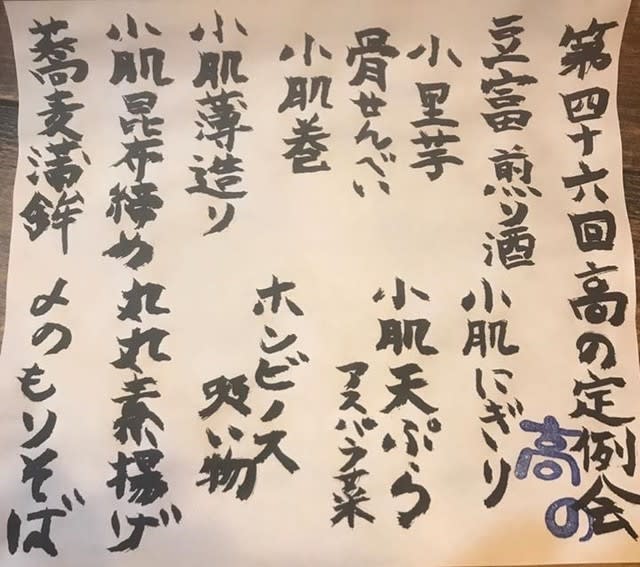 第四十六回高の定例会
高の
豆富 煎り酒
小里芋
骨せんべい
小肌巻
小肌薄造り
小肌昆布締め
蕎麦満鉾
小肌にぎり
小肌天ぷら
アスパラ菜
ホンビノス
吸い物
丸丸素揚げ
〆のもりそば